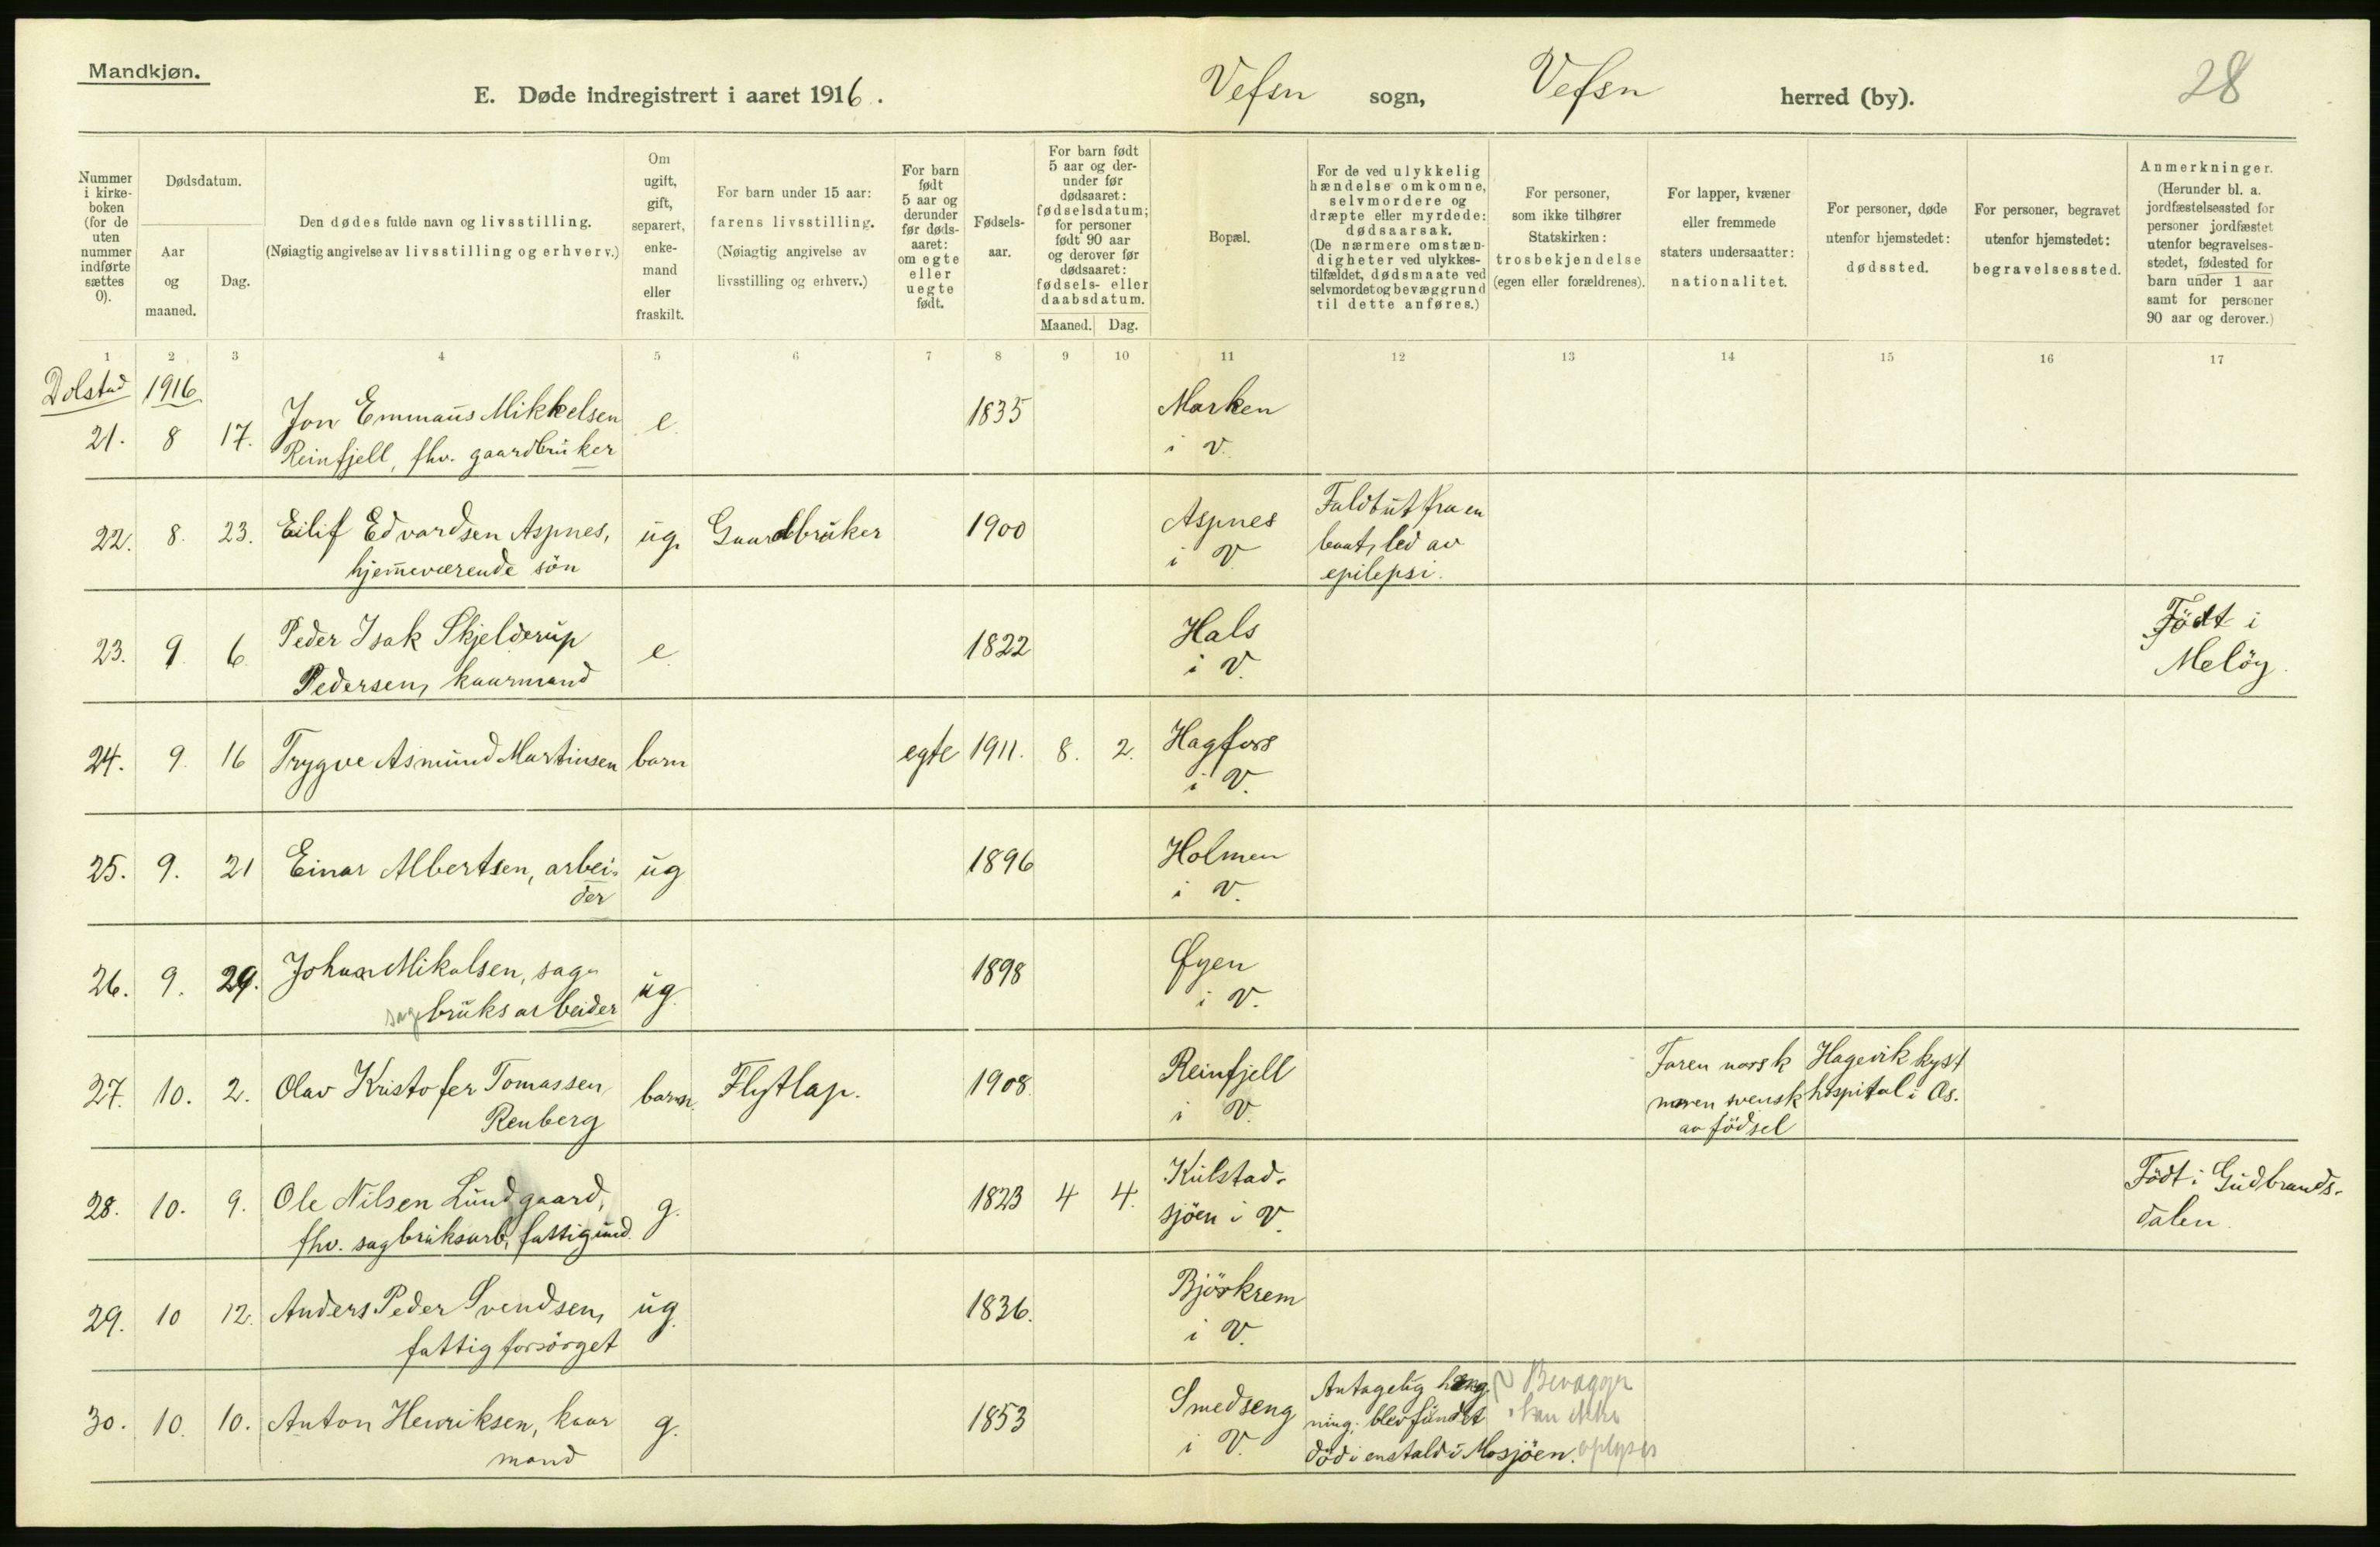 Mandkjøn.
E. Døde indregistrert i aaret 1916.
Vefsn sogn, Vefsn herred (by).
28
Nummer i kirkeboken (for de uten nummer indførte sættes 0).
Dødsdatum.
Aar og maaned.
Dag.
Den dødes fulde navn og livsstilling.
(Nøiagtig angivelse av livsstilling og erhverv.)
Om ugift, gift, separert, enkemand eller fraskilt.
For barn under 15 aar:
farens livsstilling.
(Nøiagtig angivelse av livsstilling og erhverv.)
For barn født 5 aar og derunder før dødsaaret: om egte eller uegte født.
Fødselsaar.
For barn født 5 aar og derunder før dødsaaret: fødselsdatum; for personer født 90 aar og derover før dødsaaret: fødsels- eller daabsdatum.
Maaned. Dag.
Bopæl.
For de ved ulykkelig hændelse omkomne, selvmordere og dræpte eller myrdede: dødsaarsak.
(De nærmere omstændigheter ved ulykkestilfældet, dødsmaate ved selvmordet og bevæggrund til dette anføres.)
For personer, som ikke tilhører Statskirken: trosbekjendelse (egen eller forældrenes).
For lapper, kvæner eller fremmede staters undersaatter: nationalitet.
For personer, døde utenfor hjemstedet: dødssted.
For personer, begravet utenfor hjemstedet: begravelsessted.
Anmerkninger.
(Herunder bl. a. jordfæstelsessted for personer jordfæstet utenfor begravelsesstedet, fødested for barn under 1 aar samt for personer 90 aar og derover.)
1 2 3 4 5 6 7 8 9 10 11 12 13 14 15 16 17
Dolstad 1916.
21. 8 17. Jon Emmaus Mikkelsen e. 1835 Marken
Reinfjell, fhv. gaardbruker i V.
22. 8. 23. Eilif Edvardsen Aspnes, ug. Gaardbruker 1900 Aspnes Faldt ut fra en
hjemeværende søn i V. baat, led av
epilepsi.
23. 9. 6. Peder Isak Skjelderup e. 1822 Hals Född i
Pedersen, kaarmand i V. Melöy.
24. 9. 16 Trygve Asmund Martinsen barn egte 1911. 8. 2. Hagfors
i V.
25. 9. 21 Einar Albertsen, arbei- ug 1896 Holmen
der i V.
26. 9. 29. Johan Mikalsen, sag- ug. 1898 Øyen
sagbruksarbeider i V.
27. 10. 2. Olav Kristofer Tomassen barn. Flytlap. 1908 Reinfjell Faren norsk Hagevik kyst
Renberg i V. moren svensk hospital i Os.
av födsel
28. 10. 9. Ole Nilsen Lundgaard, g. 1823 4 4. Kulstad- Född i Gudbrands-
fhv. sagbruksarb, fattigund. sjöen i V. dalen.
29. 10 12. Anders Peder Svendsen, ug. 1836. Björkrem
fattigforsörget i V.
30. 10. 10. Anton Henriksen, kaar g. 1853 Smedseng Antagelig hæng
mand i V. ning, blev fundet kan ikke
död i en stald i Mosjöen. oplyses